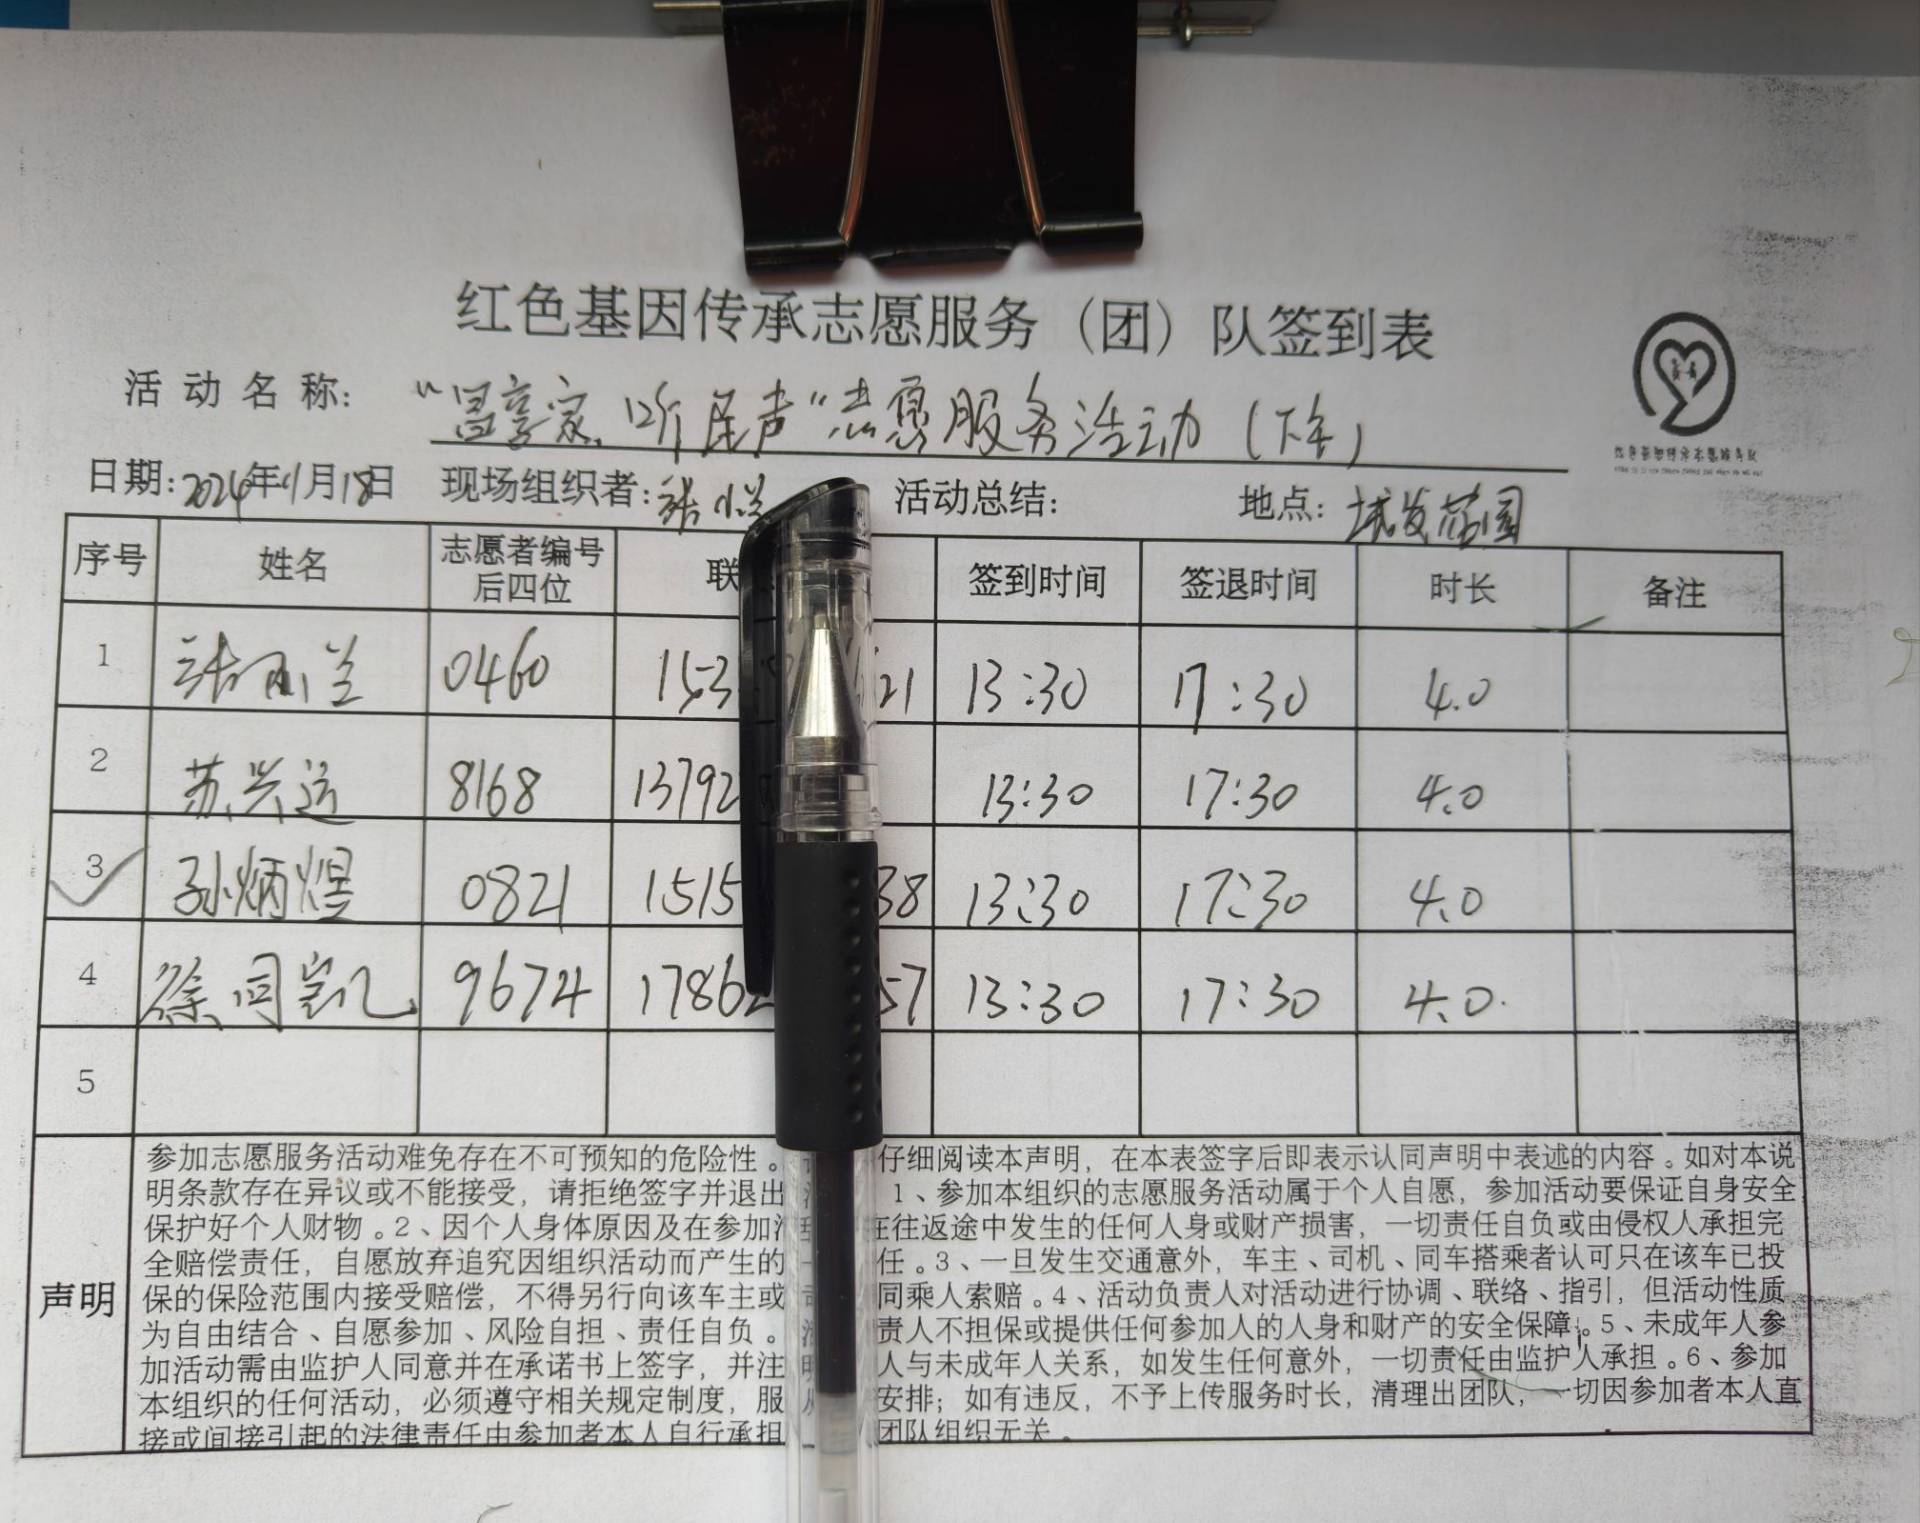 红色基因传承志愿服务（团）队签到表
活动名称： 家，听民声”志愿服务活动（下午）
日期：2024年11月18日 现场组织者：张 活动总结： 地点：城发花园
序号 姓名 志愿者编号后四位 联 签到时间 签退时间 时长 备注
1 张 兰 0460 153 21 13:30 17:30 4.0
2 苏兴运 8168 13792 13:30 17:30 4.0
3 孙炳煜 0821 1515 38 13:30 17:30 4.0
4 徐同凯 9674 1786 57 13:30 17:30 4.0
5
声明
参加志愿服务活动难免存在不可预知的危险性。 仔细阅读本声明，在本表签字后即表示认同声明中表述的内容。如对本说
明条款存在异议或不能接受，请拒绝签字并退出 1、参加本组织的志愿服务活动属于个人自愿，参加活动要保证自身安全
保护好个人财物。2、因个人身体原因及在参加 在往返途中发生的任何人身或财产损害，一切责任自负或由侵权人承担完
全赔偿责任，自愿放弃追究因组织活动而产生的 任。3、一旦发生交通意外，车主、司机、同车搭乘者认可只在该车已投
保的保险范围内接受赔偿，不得另行向该车主或 同乘人索赔。4、活动负责人对活动进行协调、联络、指引，但活动性质
为自由结合、自愿参加、风险自担、责任自负。 责人不担保或提供任何参加人的人身和财产的安全保障。5、未成年人参
加活动需由监护人同意并在承诺书上签字，并注 人与未成年人关系，如发生任何意外，一切责任由监护人承担。6、参加
本组织的任何活动，必须遵守相关规定制度，服 安排；如有违反，不予上传服务时长，清理出团队，一切因参加者本人直
接或间接引起的法律责任由参加者本人自行承担 团队组织无关。